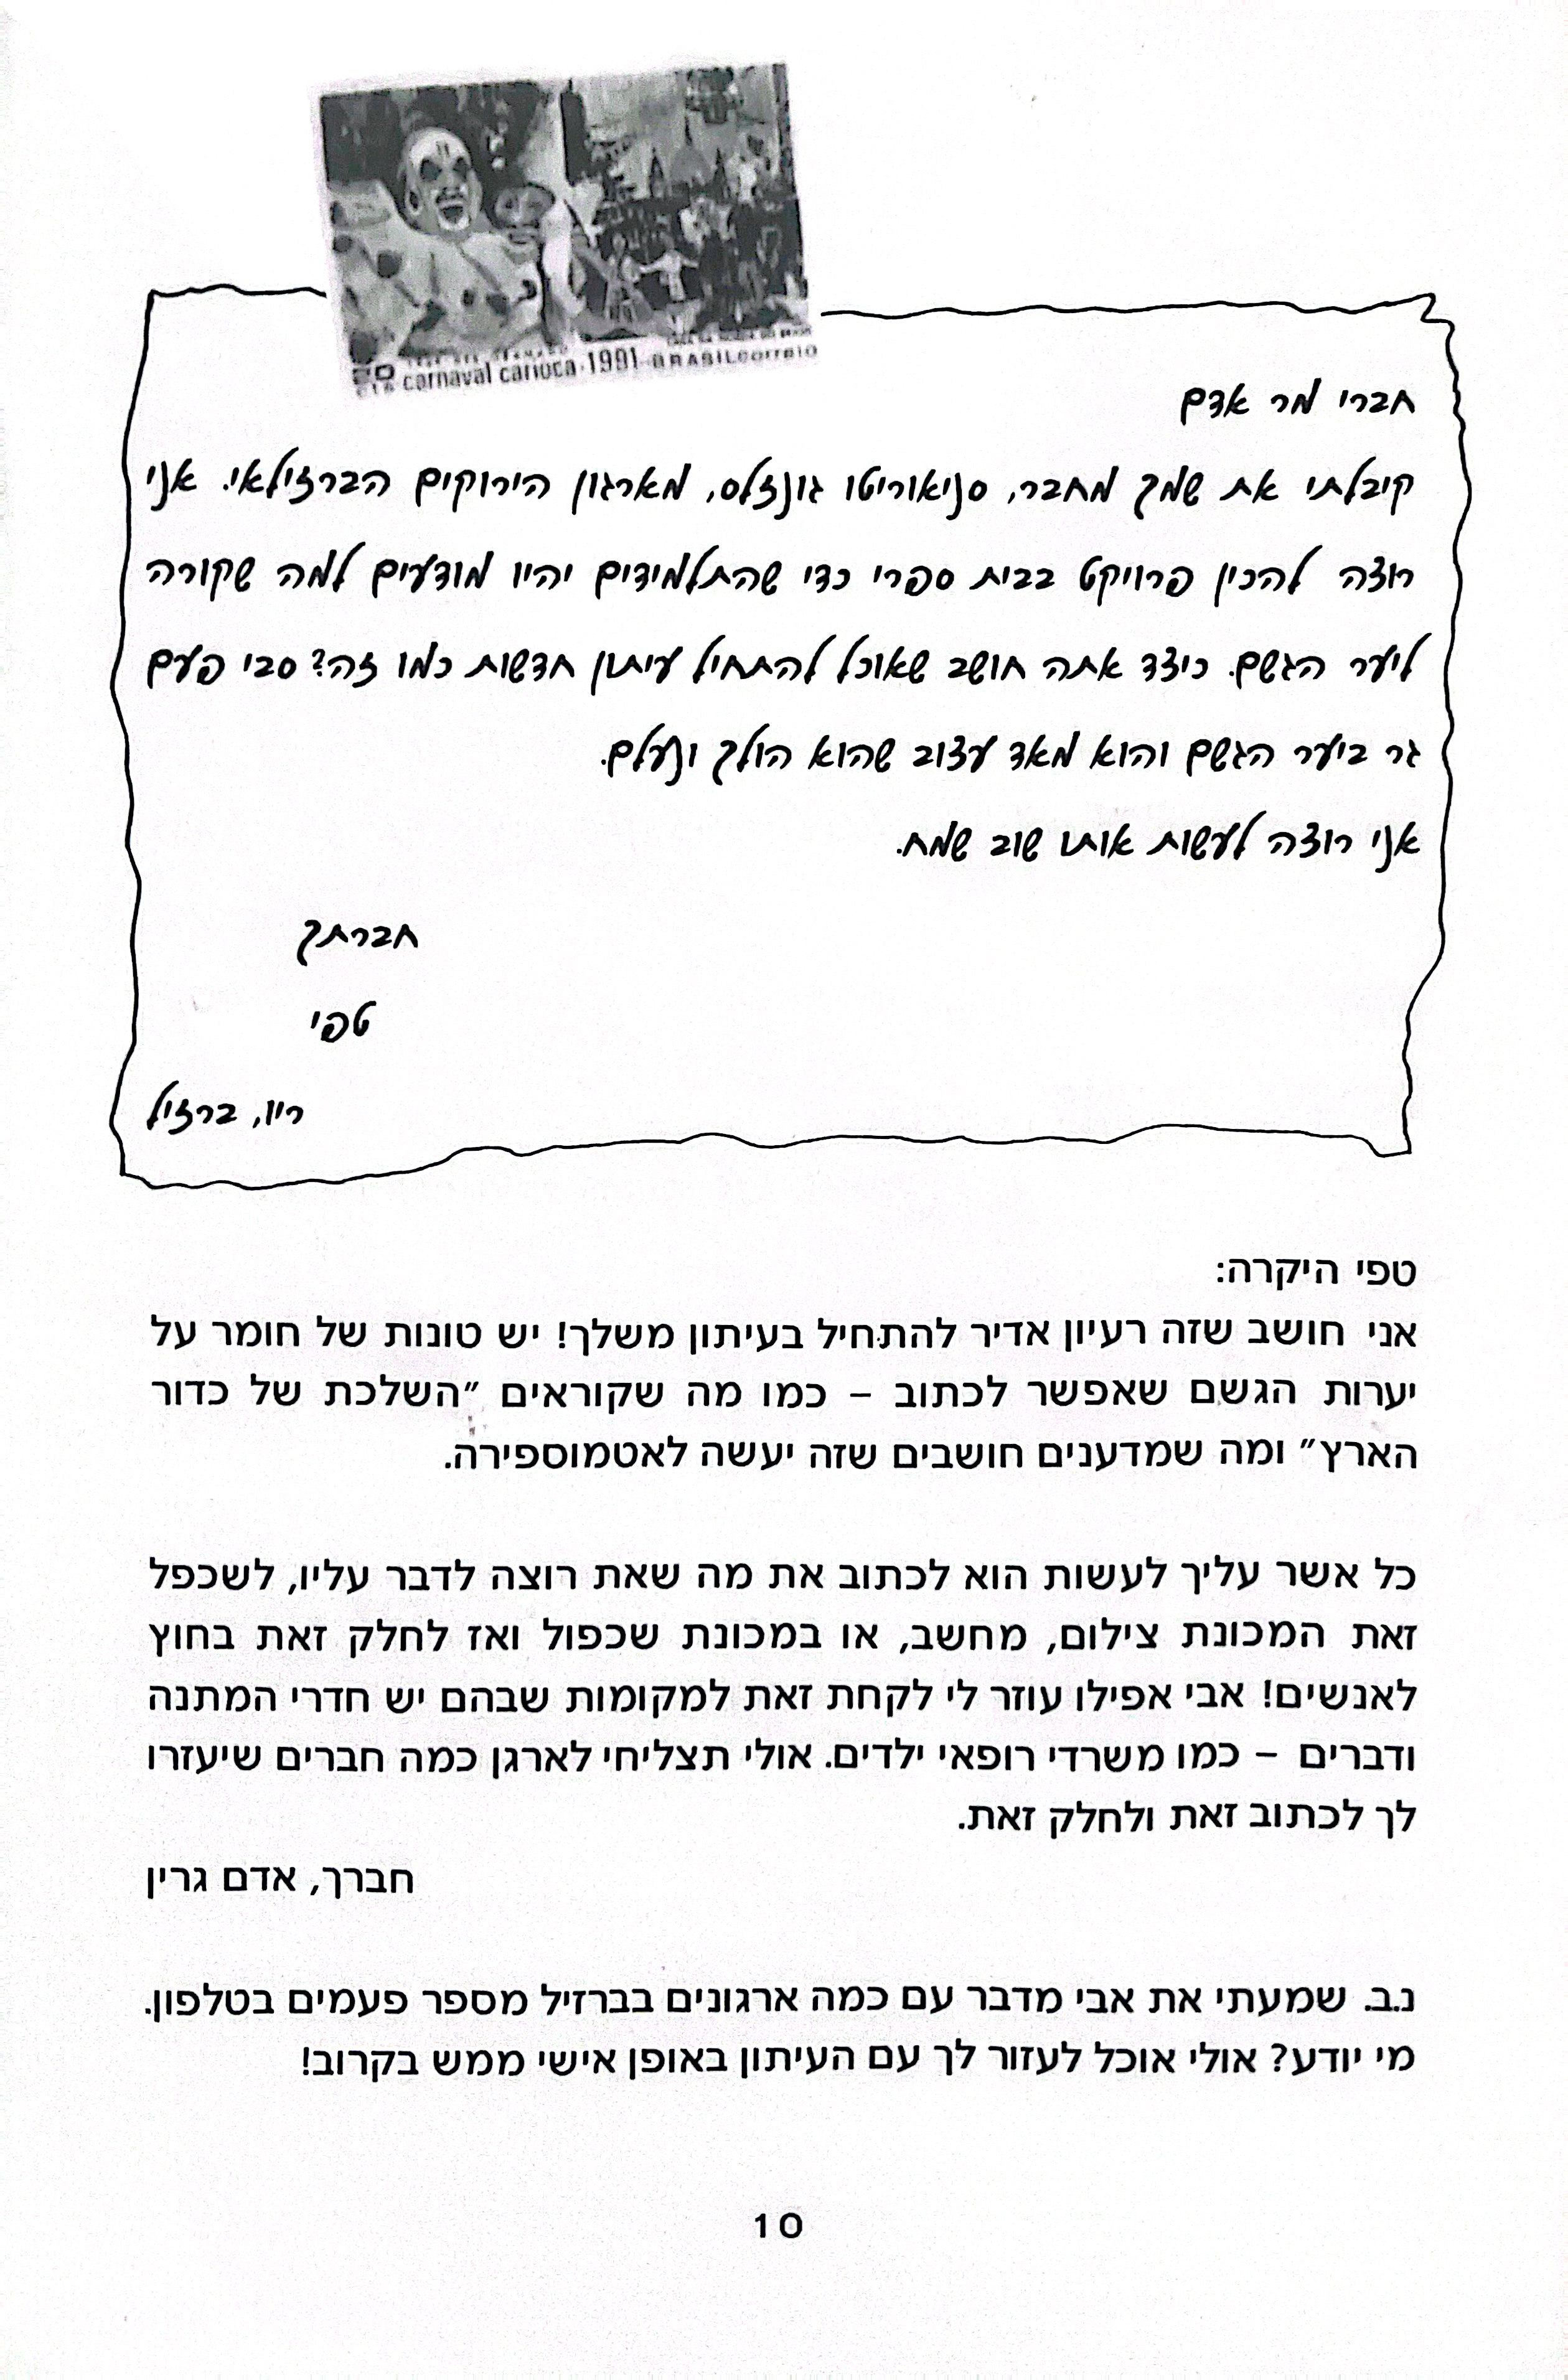 carnaval carioca 1991 BRASIL correio
חברי מר אדם
קיבלתי את שמך מחבר, סניאוריטו גונזלס, מארגון הירוקים הברזילאי. אני
רוצה להכין פרויקט בבית ספרי כדי שהתלמידים יהיו מודעים למה שקורה
ליער הגשם. כיצד אתה חושב שאוכל להתחיל עיתון חדשות כמו זה? סבי פעם
גר ביער הגשם והוא מאד עצוב שהוא הולך ונעלם.
אני רוצה לעשות אותו שוב שמח.
חברתך
טפי
ריו, ברזיל
טפי היקרה:
אני חושב שזה רעיון אדיר להתחיל בעיתון משלך! יש טונות של חומר על
יערות הגשם שאפשר לכתוב – כמו מה שקוראים ״השלכת של כדור
הארץ״ ומה שמדענים חושבים שזה יעשה לאטמוספירה.
כל אשר עליך לעשות הוא לכתוב את מה שאת רוצה לדבר עליו, לשכפל
זאת המכונת צילום, מחשב, או במכונת שכפול ואז לחלק זאת בחוץ
לאנשים! אבי אפילו עוזר לי לקחת זאת למקומות שבהם יש חדרי המתנה
ודברים – כמו משרדי רופאי ילדים. אולי תצליחי לארגן כמה חברים שיעזרו
לך לכתוב זאת ולחלק זאת.
חברך, אדם גרין
נ.ב. שמעתי את אבי מדבר עם כמה ארגונים בברזיל מספר פעמים בטלפון.
מי יודע? אולי אוכל לעזור לך עם העיתון באופן אישי ממש בקרוב!
10